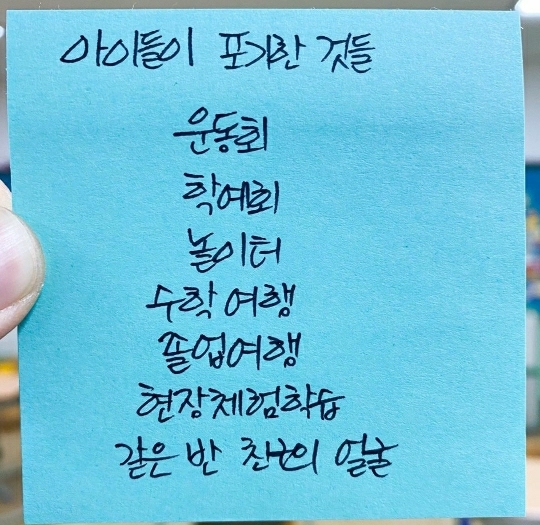 아이들이 포기한 것들
운동회
학예회
놀이터
수학여행
졸업여행
현장체험학습
같은 반 친구의 얼굴